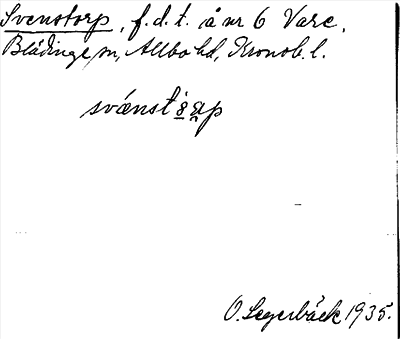 Svenstorp, f.d.t. å nr 6 Vare,
Blädinge sn, Allbo hd, Kronob. l.
svænst
O. Segerbäck 1935.